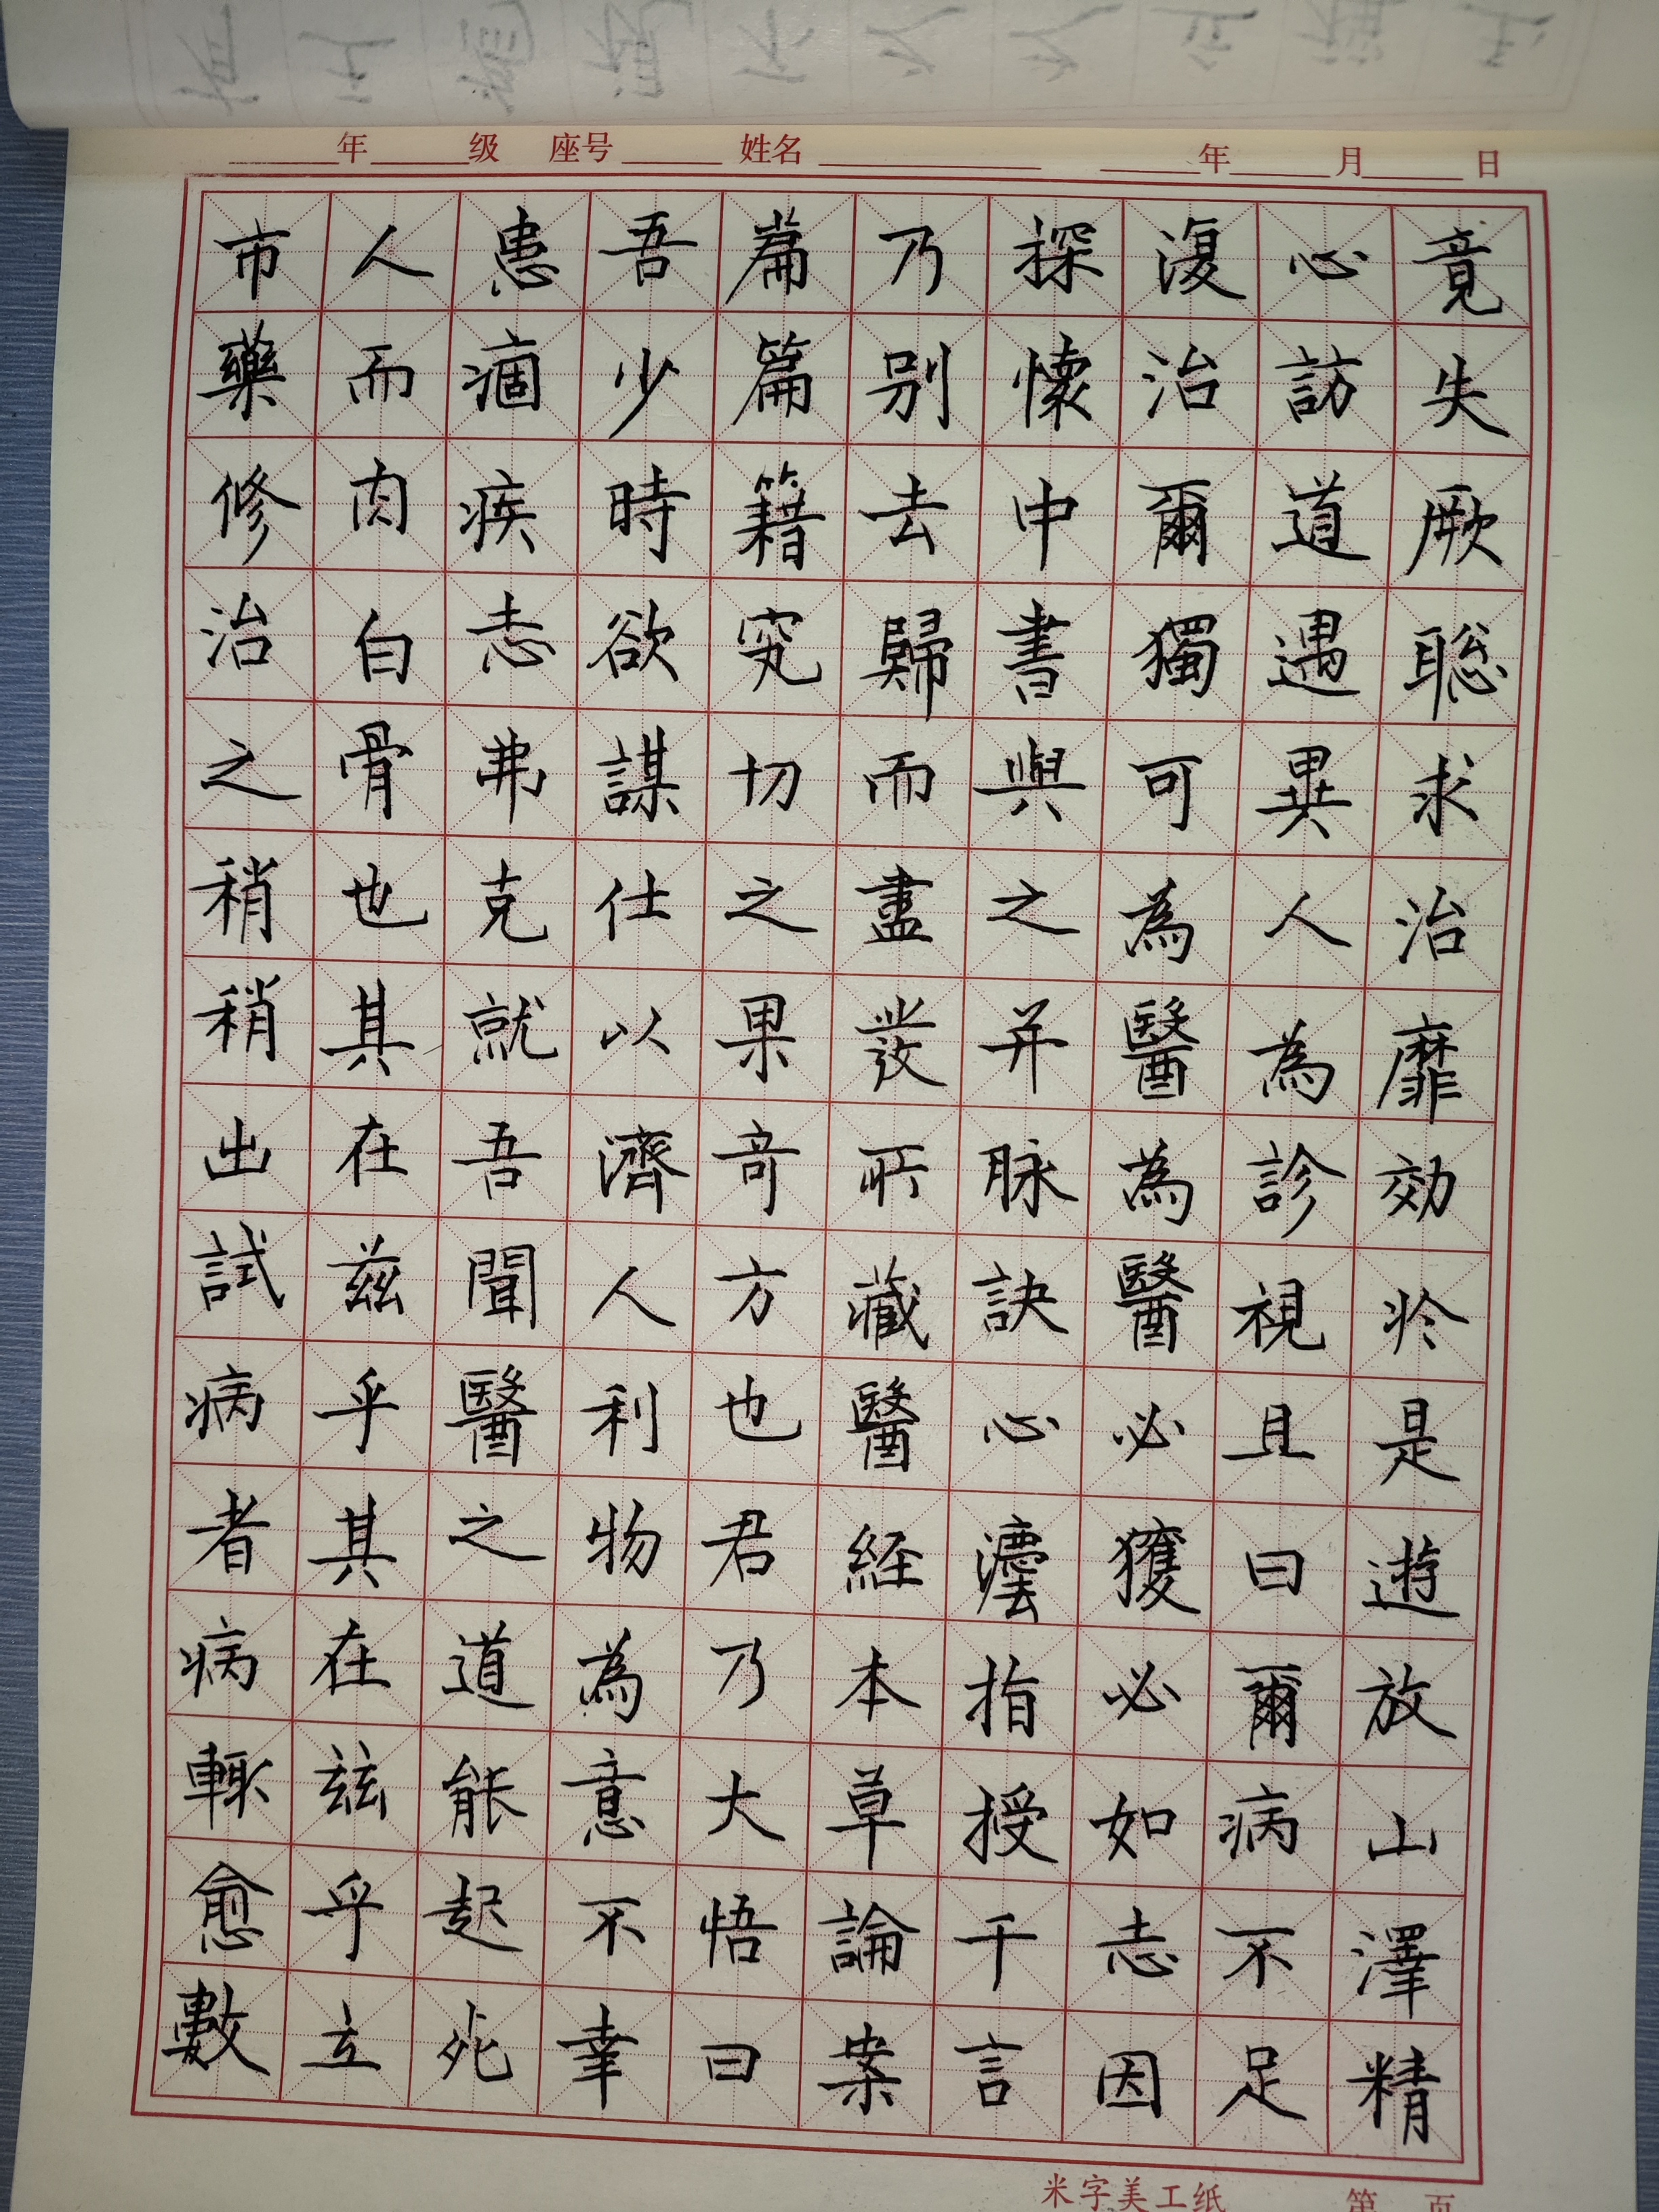 年 级 座号 姓名 年 月 日
竟失厥聪求治靡効扵是遊放山澤精
心訪道遇異人為診視且曰爾病不足
復治爾獨可為醫為醫必獲必如志因
探懷中書與之并脉訣心灋指授千言
乃别去歸而盡發所藏醫経本草論案
篇篇籍究切之果奇方也君乃大悟曰
吾少時欲謀仕以濟人利物為意不幸
患痼疾志弗克就吾聞醫之道能起死
人而肉白骨也其在兹乎其在兹乎立
市藥修治之稍稍出試病者病輙愈數
米字美工纸 第 页